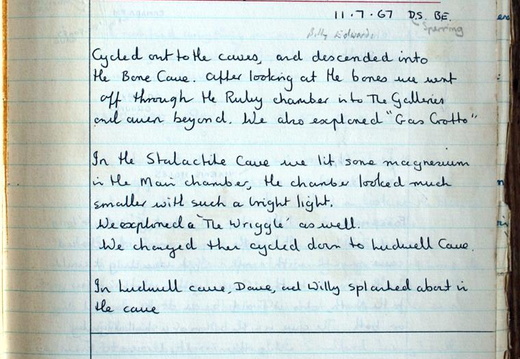 11.7.67 D.S. BE.
Billy Edwards Sperring
Cycled out to the caves, and descended into
the Bone Cave. After looking at the bones we went
off through the Ruby chamber into The Galleries
and even beyond. We also explored "Gas Grotto"
In the Stalactite Cave we lit some magnesium
in the Main chamber, the chamber looked much
smaller with such a bright light.
We explored a 'The Wriggle' as well.
We changed then cycled down to Ludwell Cave.
In Ludwell cave, Dave, and Willy splashed about in
the cave